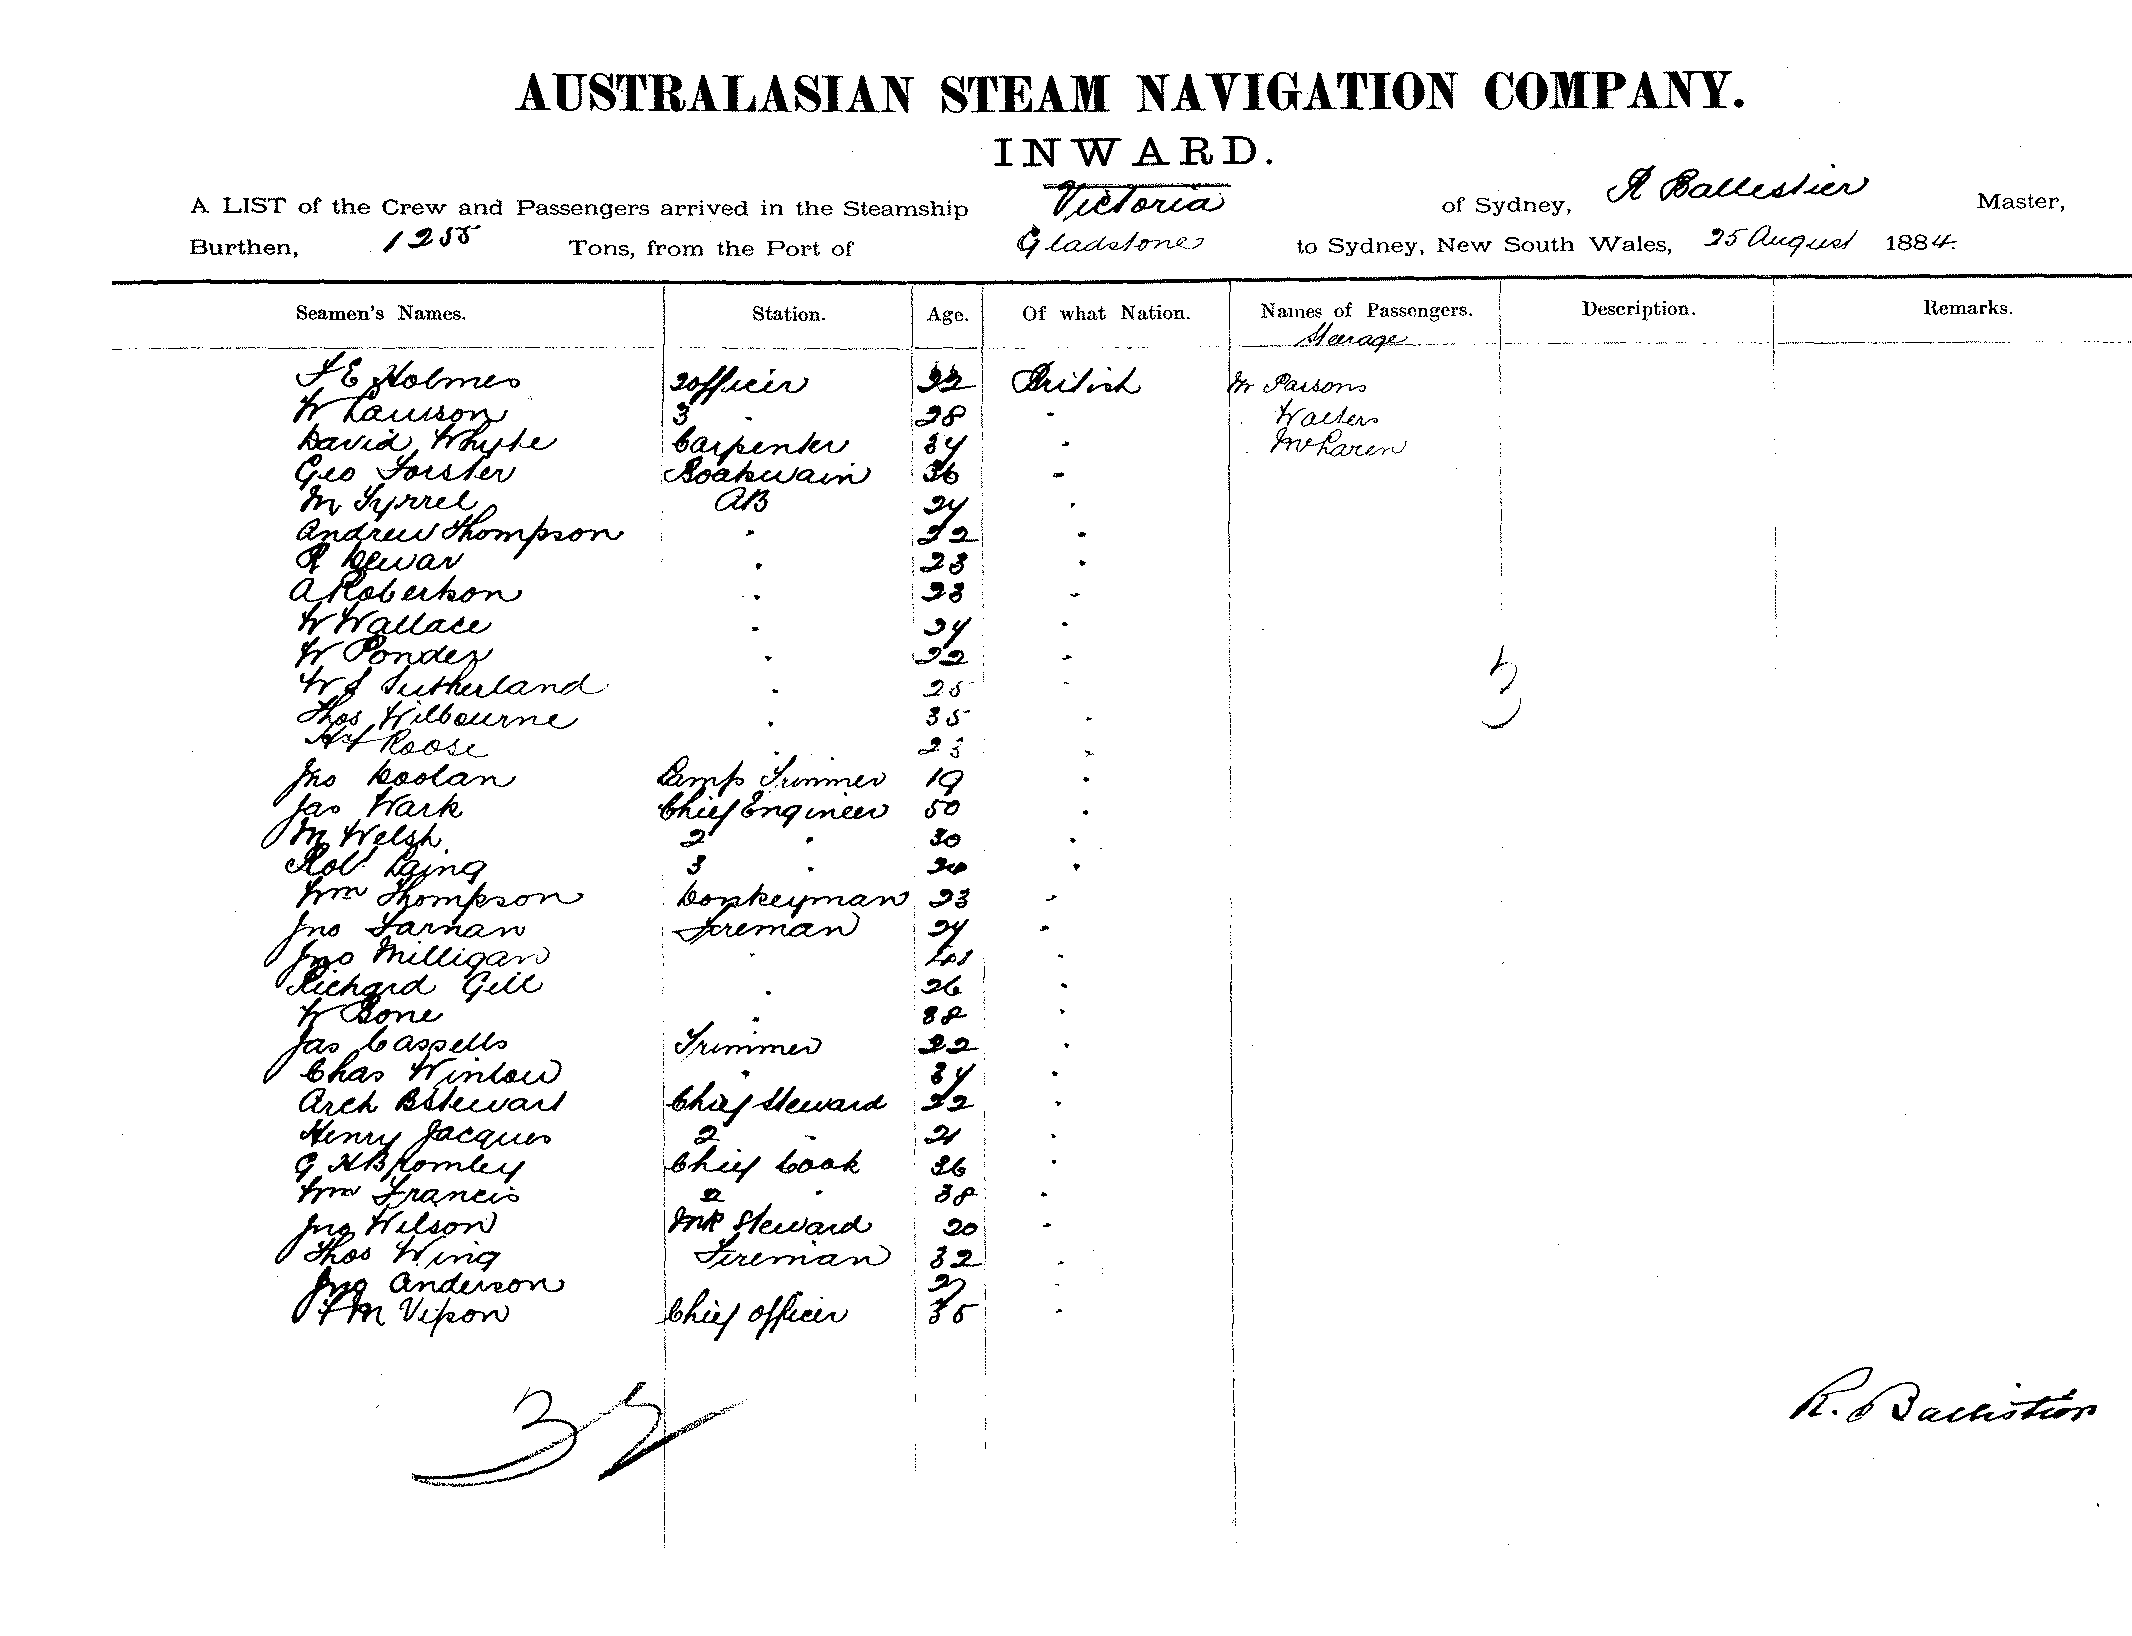 AUSTRALASIAN STEAM NAVIGATION COMPANY.
INWARD.
A LIST of the Crew and Passengers arrived in the Steamship Victoria of Sydney, R Ballestier Master,
Burthen, 1255 Tons, from the Port of Gladstone to Sydney, New South Wales, 25 August 1884.
Seamen's Names. Station. Age. Of what Nation. Names of Passengers. Description. Remarks.
Steerage
F E Holmes 2 officer British Mr Parsons
W Lawson 3 " 28 " Walters
David Whyte Carpenter 34 " McLaren
Geo Forster Boatswain 36 "
M Tyrrel AB 24 "
Andrew Thompson " 22 "
R Dewar " 23 "
A Robertson " 23 "
W Wallace " 24 "
W Ponder " 22 "
W J Sutherland " 25 "
Thos Wilbourne " 35 "
Roose " 23 "
Jno Doolan Lamp Trimmer 19 "
Jas Wark Chief Engineer 50 "
M Welsh 2 " 30 "
Robt Laing 3 " "
Wm Thompson Donkeyman 23 "
Jno Farnan Fireman 24 "
Jno Milligan " "
Richard Gill " 26 "
W Bone " 38 "
Jas Cassells Trimmer 22 "
Chas Winlow " 34 "
Arch B Stewart Chief Steward 22 "
Henry Jacques 2 " 21 "
G H Bromley Chief Cook 36 "
Wm Francis 2 " 38 "
Jno Wilson Steward 20 "
Thos Wing Fireman 32 "
Jno Anderson 27 "
Vipon Chief officer 35 "
3
32
R. Ballistier